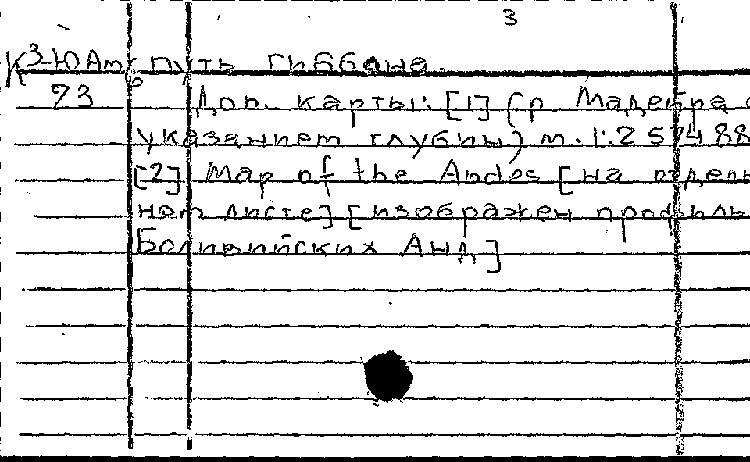 3
К 3-ЮАм: путь Гиббона.
6
73 Доп. карты: [1] (р. Мадейра с
указанием глубины) м. 1:2 574 88
[2] Map of the Andes [на отдель
ном листе] [изображен профиль
Боливийских Анд]